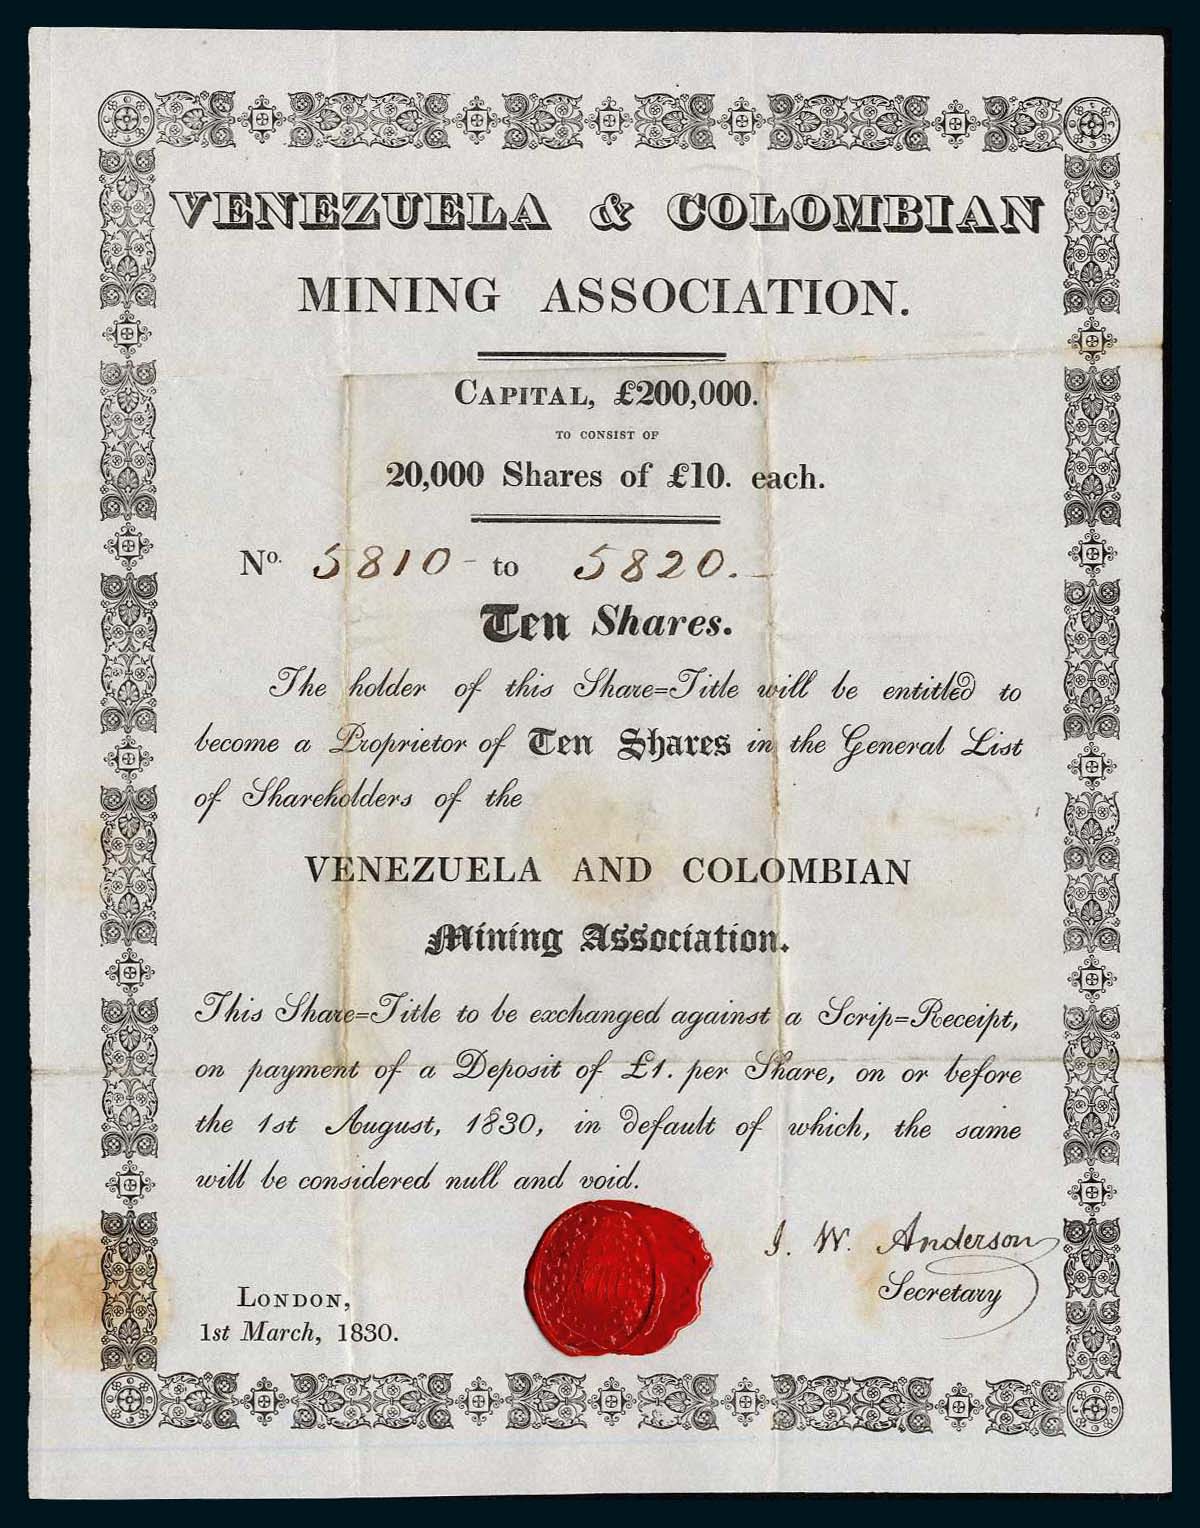 VENEZUELA & COLOMBIAN
MINING ASSOCIATION.
CAPITAL, £200,000.
TO CONSIST OF
20,000 Shares of £10. each.
No. 5810 - to 5820. -
Ten Shares.
The holder of this Share=Title will be entitled to
become a Proprietor of Ten Shares in the General List
of Shareholders of the
VENEZUELA AND COLOMBIAN
Mining Association.
This Share=Title to be exchanged against a Scrip=Receipt,
on payment of a Deposit of £1. per Share, on or before
the 1st August, 1830, in default of which, the same
will be considered null and void.
J. W. Anderson
Secretary
LONDON,
1st March, 1830.